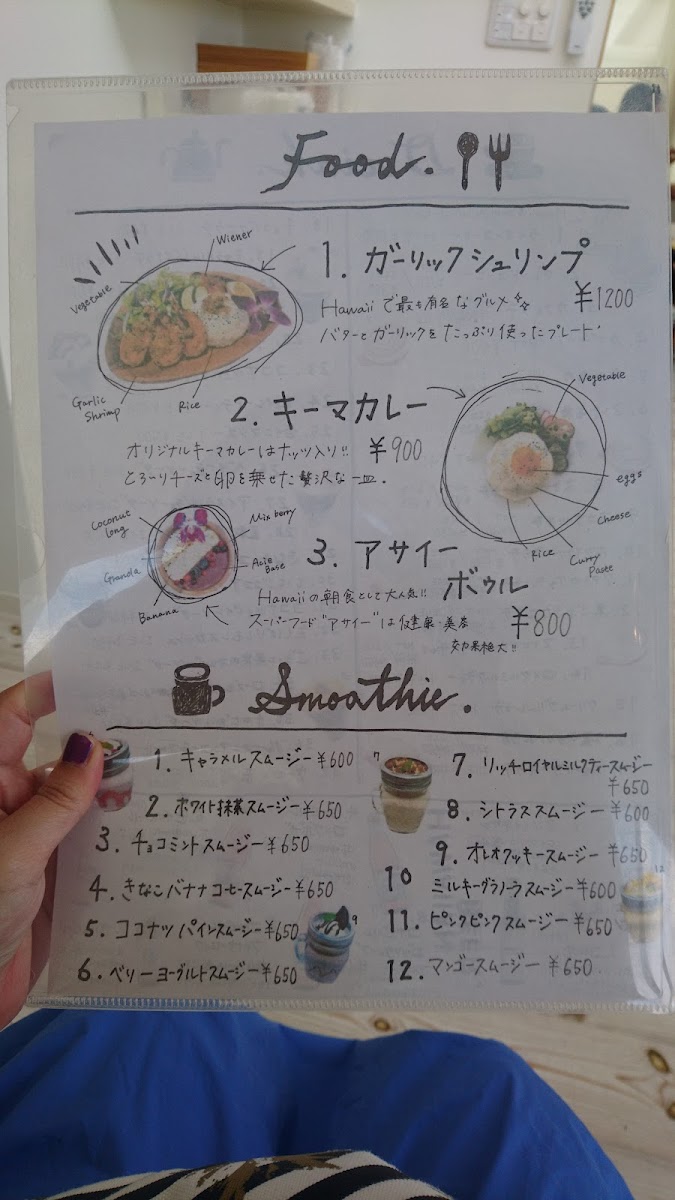 Food.
Wiener
Vegetable
Garlic Shrimp
Rice
1. ガーリックシュリンプ
Hawaiiで最も有名なグルメ
¥1200
バターとガーリックをたっぷり使ったプレート
2. キーマカレー
オリジナルキーマカレーはナッツ入り!!
¥900
とろ〜りチーズと卵を乗せた贅沢な一皿.
Vegetable
eggs
Cheese
Curry Paste
Rice
Coconut long
Mix berry
Granola
Acie Base
Banana
3. アサイーボウル
Hawaiiの朝食として大人気!!
スーパーフード"アサイー"は健康・美容
効果絶大!!
¥800
Smoothie.
1. キャラメルスムージー ¥600
2. ホワイト抹茶スムージー ¥650
3. チョコミントスムージー ¥650
4. きなこバナナコーヒースムージー ¥650
5. ココナッツパインスムージー ¥650
6. ベリーヨーグルトスムージー ¥650
7
9
12
7. リッチロイヤルミルクティースムージー
¥650
8. シトラススムージー ¥600
9. オレオクッキースムージー ¥650
10 ミルキーグラノーラスムージー ¥600
11. ピンクピンクスムージー ¥650
12. マンゴースムージー ¥650